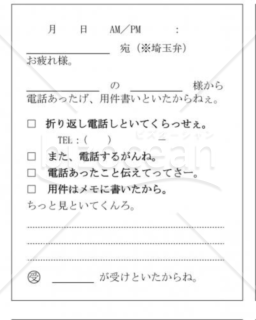 月　日　AM／PM　：
＿＿＿＿＿＿ 宛（※埼玉弁）
お疲れ様。
＿＿＿＿＿＿ の ＿＿＿＿＿＿ 様から
電話あったげ、用件書いといたからねぇ。
□ 折り返し電話しといてくらっせぇ。
TEL：(　　)　　－
□ また、電話するがんね。
□ 電話あったこと伝えてってさー。
□ 用件はメモに書いたから。
ちっと見といてくんろ。
受 ＿＿＿＿ が受けといたからね。